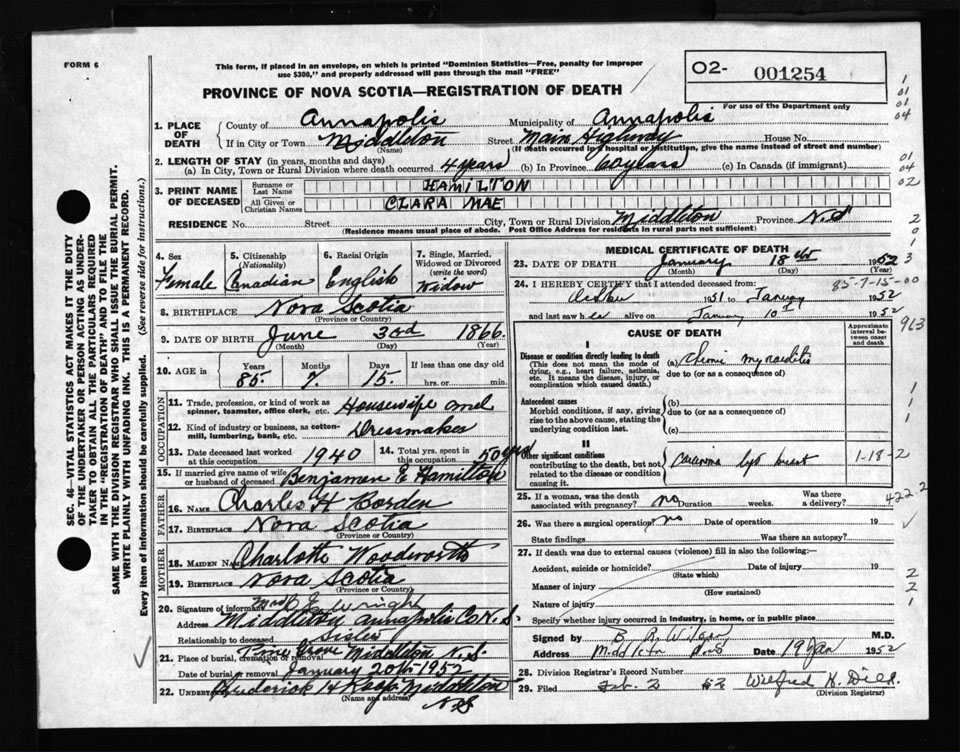 FORM 6
This form, if placed in an envelope, on which is printed "Dominion Statistics—Free, penalty for improper
use $300," and properly addressed will pass through the mail "FREE"
PROVINCE OF NOVA SCOTIA—REGISTRATION OF DEATH
O2- 001254
For use of the Department only
1. PLACE OF DEATH
County of Annapolis Municipality of Annapolis
If in City or Town Middleton Street Main Highway House No.
(Name) (If death occurred in a hospital or institution, give the name instead of street and number)
2. LENGTH OF STAY (in years, months and days)
(a) In City, Town or Rural Division where death occurred 4 years (b) In Province (c) In Canada (if immigrant)
3. PRINT NAME OF DECEASED
Surname or Last Name HAMILTON
All Given or Christian Names CLARA MAE
RESIDENCE No. Street City, Town or Rural Division Middleton Province N.S
(Residence means usual place of abode. Post Office Address for residents in rural parts not sufficient)
SEC. 46—VITAL STATISTICS ACT MAKES IT THE DUTY
OF THE UNDERTAKER OR PERSON ACTING AS UNDER-
TAKER TO OBTAIN ALL THE PARTICULARS REQUIRED
IN THE "REGISTRATION OF DEATH" AND TO FILE THE
SAME WITH THE DIVISION REGISTRAR WHO SHALL ISSUE THE BURIAL PERMIT.
WRITE PLAINLY WITH UNFADING INK. THIS IS A PERMANENT RECORD.
Every item of information should be carefully supplied. (See reverse side for instructions.)
4. Sex Female
5. Citizenship (Nationality) Canadian
6. Racial Origin English
7. Single, Married, Widowed or Divorced (write the word) Widow
8. BIRTHPLACE Nova Scotia
(Province or Country)
9. DATE OF BIRTH June 3rd 1866
(Month) (Day) (Year)
10. AGE in Years 85 Months 7 Days 15 If less than one day old hrs. or min.
OCCUPATION
11. Trade, profession, or kind of work as spinner, teamster, office clerk, etc. Housewife and
12. Kind of industry or business, as cotton-mill, lumbering, bank, etc. Dressmaker
13. Date deceased last worked at this occupation 1940
14. Total yrs. spent in this occupation 50 yrs
15. If married give name of wife or husband of deceased Benjamen E Hamilton
FATHER
16. NAME Charles H Borden
17. BIRTHPLACE Nova Scotia
(Province or Country)
MOTHER
18. MAIDEN NAME Charlotte Woodworth
19. BIRTHPLACE Nova Scotia
(Province or Country)
20. Signature of informant Wright
Address Middleton Annapolis Co N.S.
Relationship to deceased Sister
21. Place of burial, cremation or removal Pine Grove Middleton N.S.
Date of burial or removal January 20th 1952
22. UNDERTAKER Middleton
(Name and address)
N.S
MEDICAL CERTIFICATE OF DEATH
23. DATE OF DEATH January 18th 1952
(Month) (Day) (Year)
24. I HEREBY CERTIFY that I attended deceased from:
85-7-15-00
1951 to January 1952
and last saw h alive on January 10th 1952
CAUSE OF DEATH
Approximate interval between onset and death
I
Disease or condition directly leading to death
(This does not mean the mode of dying, e.g., heart failure, asthenia, etc. It means the disease, injury, or complication which caused death.)
(a)
due to (or as a consequence of)
Antecedent causes
Morbid conditions, if any, giving rise to the above cause, stating the underlying condition last.
(b)
due to (or as a consequence of)
(c)
II
Other significant conditions contributing to the death, but not related to the disease or condition causing it.
1-18-2
25. If a woman, was the death associated with pregnancy? no Duration weeks. Was there a delivery?
4222
26. Was there a surgical operation? no Date of operation 19
State findings Was there an autopsy?
27. If death was due to external causes (violence) fill in also the following:—
Accident, suicide or homicide? Date of injury 19
(State which)
Manner of injury
(How sustained)
Nature of injury
Specify whether injury occurred in industry, in home, or in public place
Signed by M.D.
Address Middleton Date 19 Jan 1952
28. Division Registrar's Record Number
29. Filed Feb. 2 52 Wilfred K. Dill
(Division Registrar)